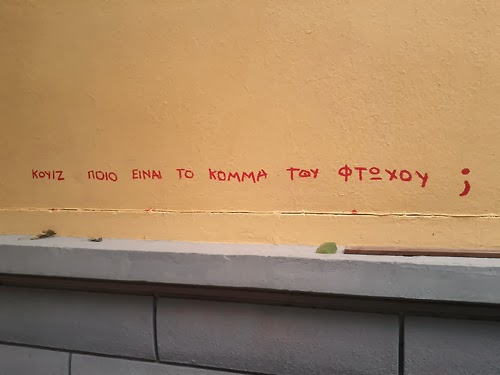 ΚΟΥΙΖ ΠΟΙΟ ΕΙΝΑΙ ΤΟ ΚΟΜΜΑ ΤΟΥ ΦΤΩΧΟΥ ;